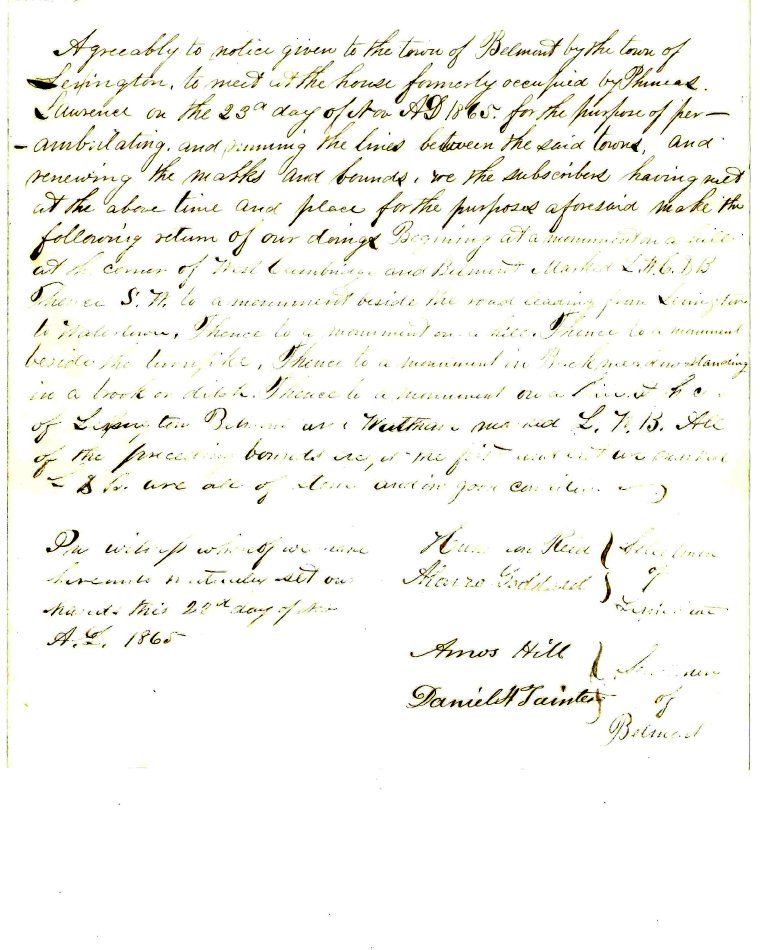 Agreeably to notice given to the town of Belmont by the town of
Lexington, to meet at the house formerly occupied by Phineas
Lawrence on the 23d day of Nov AD 1865. for the purpose of per-
-ambulating. and running the lines between the said towns, and
renewing the marks and bounds, we the subscribers having met
at the above time and place for the purposes aforesaid make the
following return of our doings Begining at a monument on a hill
at the corner of West Cambridge and Belmont Marked L W.C. B
Thence S. W. to a monument beside the road leading from Lexington
to Watertown, Thence to a monument on a hill. Thence to a monument
beside the turnpike, Thence to a monument in Rock meadow standing
in a brook or ditch. Thence to a monument on a
of Lexington Belmont and Waltham marked L. W. B. All
of the preceding bounds the first and last are marked
L B are all of stone and in good condition
In witness whereof we have
hereunto mutually set our
hands this 23d day of Nov
A.D. 1865
Reed
Alonzo Goddard
Selectmen
of
Lexington
Amos Hill
Daniel H Tainter
Selectmen
of
Belmont